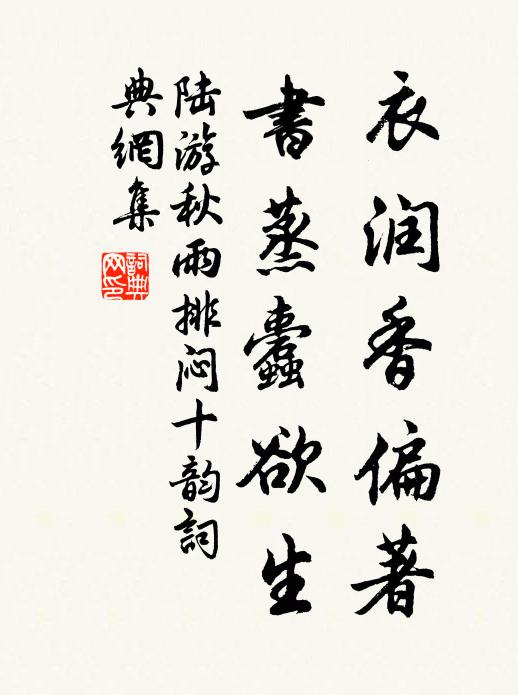 衣润香偏著
書蒸蠹欲生
陆游秋雨排闷十韵詞
典網集
詞典
网印